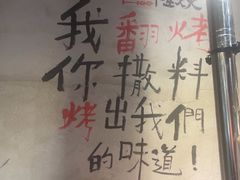 我翻烤
你撒料
烤出我們
的味道！